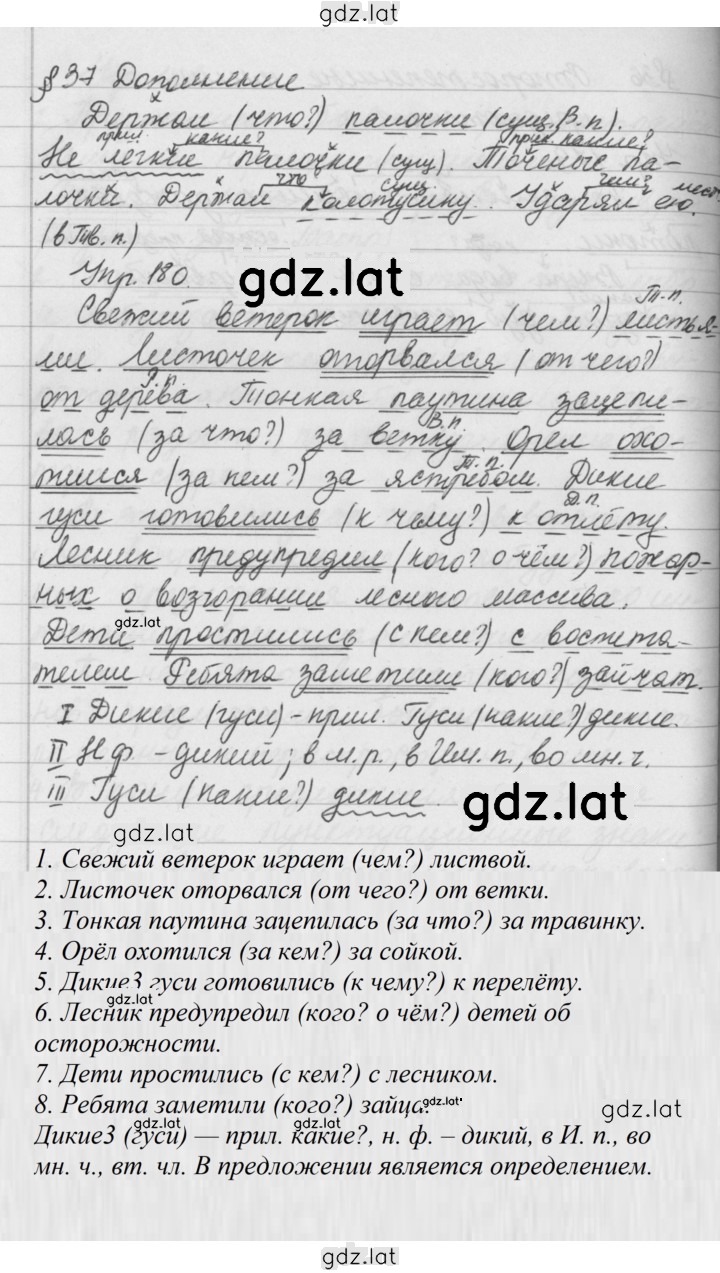 gdz.lat
§37 Дополнение
Держал (что?) палочки (сущ. В.п).
прил. какие? прил. какие?
Не лёгкие палочки (сущ). Точеные па-
что сущ. чем? мест.
лочки. Держал колотушку. Ударял ею.
(в Тв. п.)
Упр. 180. gdz.lat
Т.п.
Свежий ветерок играет (чем?) листья-
ми. Листочек оторвался (от чего?)
Р.п.
от дерева. Тонкая паутина зацепи-
В.п.
лась (за что?) за ветку. Орел охо-
Т.п.
тился (за кем?) за ястребом. Дикие
Д.п.
гуси готовились (к чему?) к отлёту.
Лесник предупредил (кого? о чём?) пожар-
ных о возгорании лесного массива.
gdz.lat
Дети простились (с кем?) с воспита-
телем Ребята заметили (кого?) зайчат.
I Дикие (гуси) - прил. Гуси (какие?) дикие.
II Н.ф. - дикий; в м.р., в Им. п., во мн. ч.
III Гуси (какие?) дикие gdz.lat
gdz.lat
1. Свежий ветерок играет (чем?) листвой.
2. Листочек оторвался (от чего?) от ветки.
3. Тонкая паутина зацепилась (за что?) за травинку.
4. Орёл охотился (за кем?) за сойкой.
5. Дикие3 гуси готовились (к чему?) к перелёту.
gdz.lat
6. Лесник предупредил (кого? о чём?) детей об
осторожности.
7. Дети простились (с кем?) с лесником.
8. Ребята заметили (кого?) зайца. gdz.lat gdz.lat
gdz.lat gdz.lat
Дикие3 (гуси) — прил. какие?, н. ф. – дикий, в И. п., во
мн. ч., вт. чл. В предложении является определением.
gdz.lat